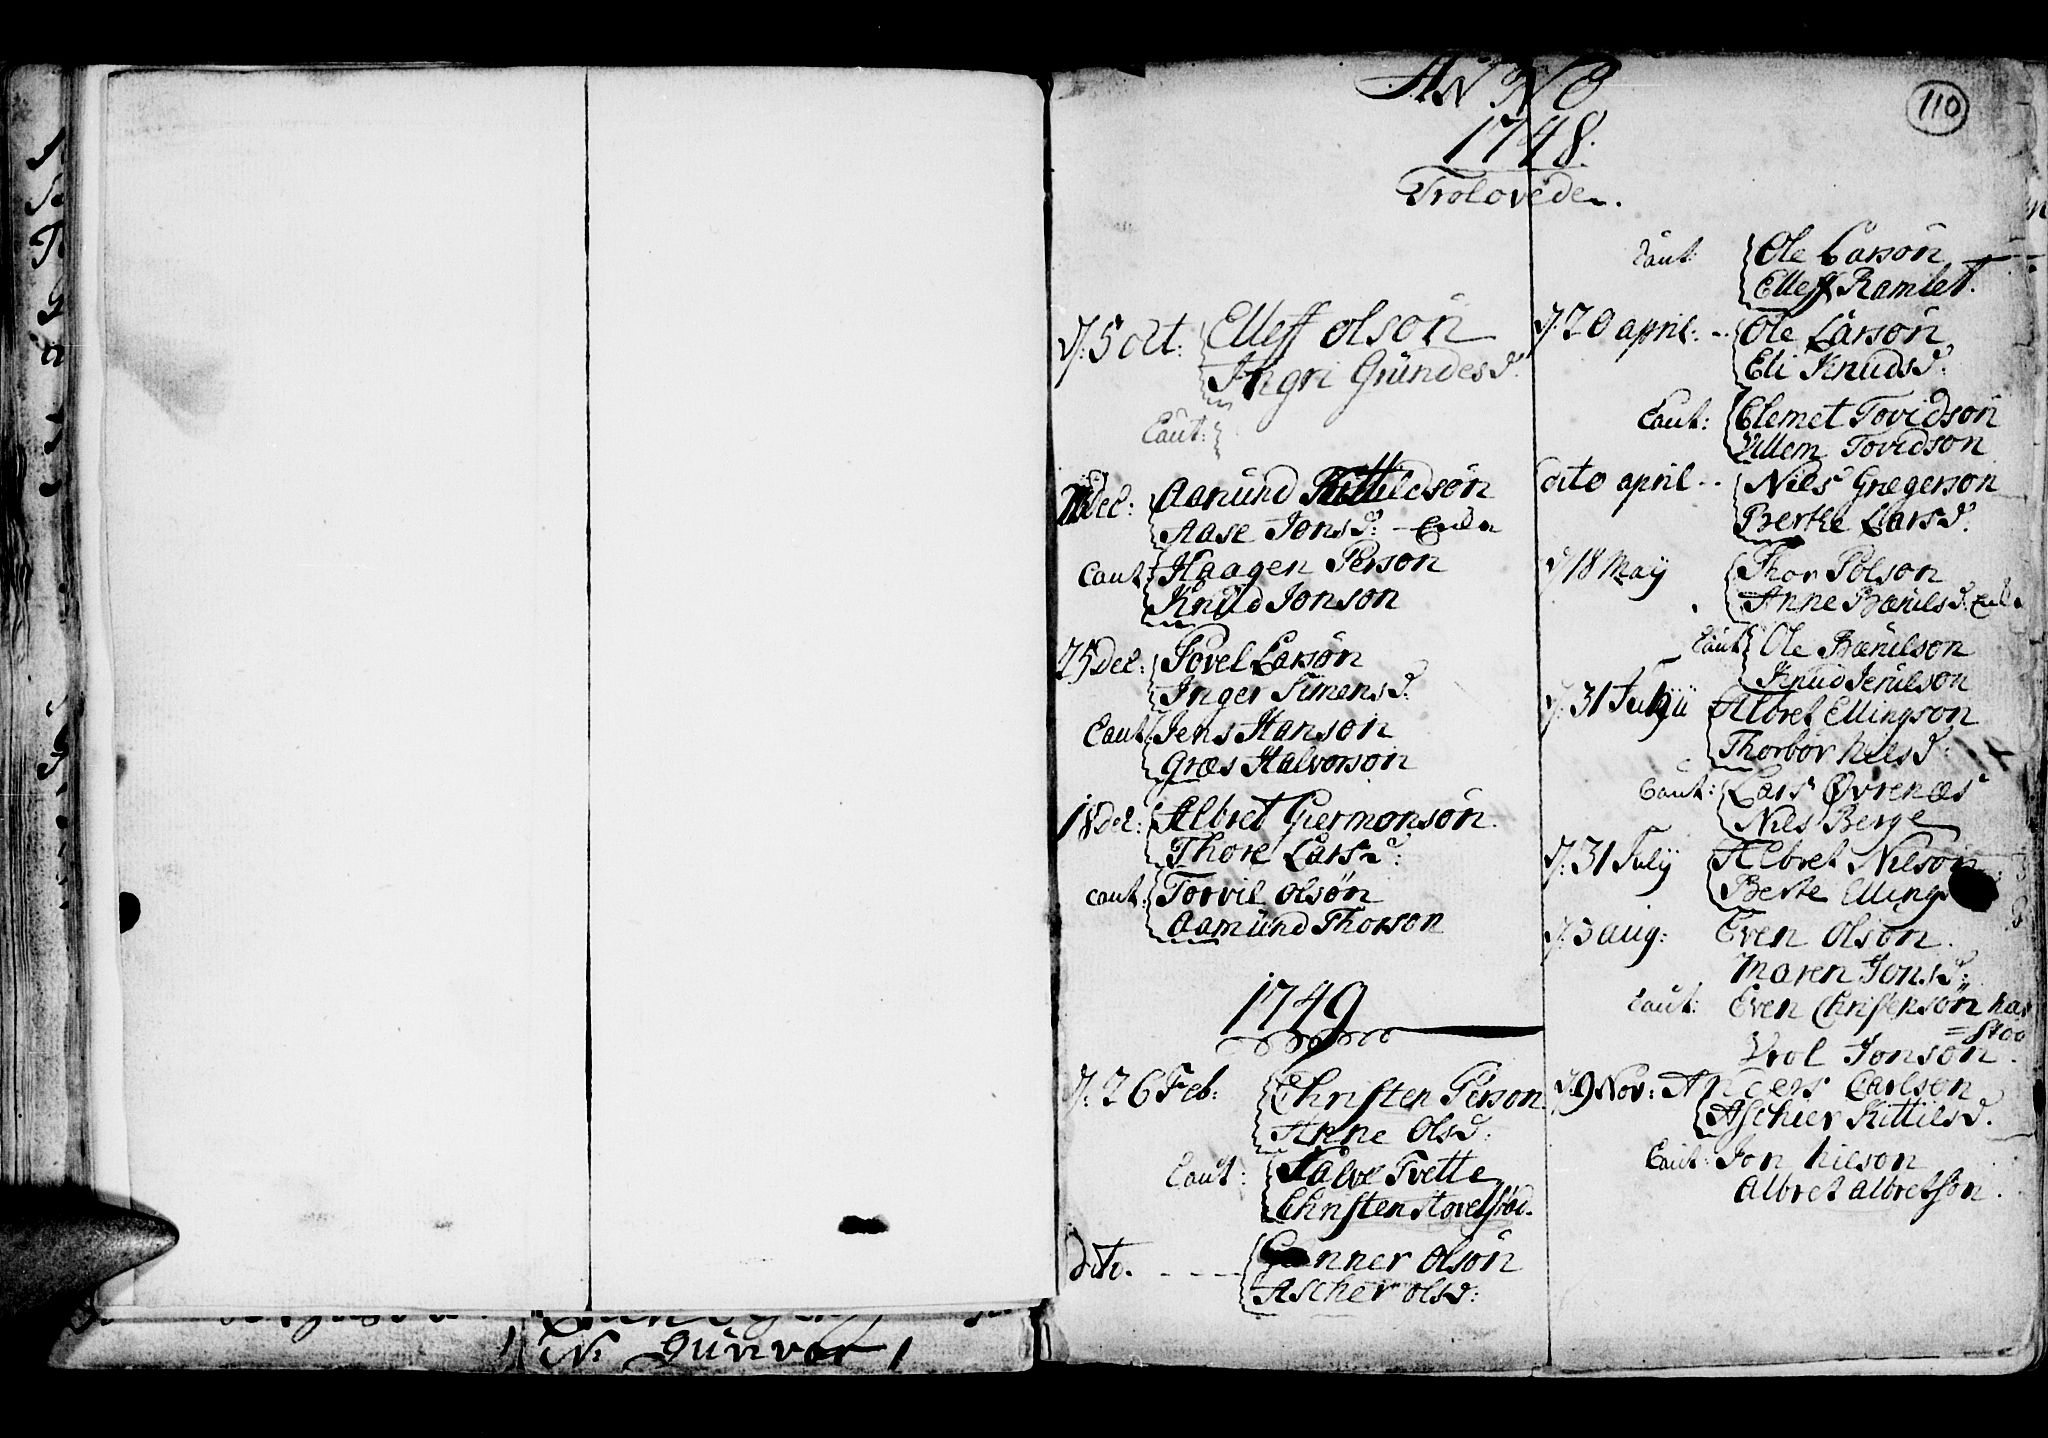 110
ANNO
1748.
Troloveden.
d. 5 oct: Elleff olsön
Ingri Gründesd.
Caut:
Dec: Aamünd Kittildsön
Aase Jonsd: - Enke
Caut: Haagen Person
Knüd Jonson
25 Dec: Povel Larsön
Inger Simensd:
Caut: Jens Hanson
Græs Halvorsön
18 Dec: Albret Giermonsön.
Thore Larsd:
caut: Torvil olsön
Aamünd Thorson
1749
d. 26 Feb: Christen Person
Anne Olsd:
Caut: Salve Tvette
Christen Hovelstöd.
dito. - - - Gunner olson
Ascher olsd:
Caut: Ole Carsön
Elleff Ramlet.
d. 20 april: -- Ole Larson
Eli Knudsd:
Caut: Clemet Tovidson
Villem Tovidson
dito april - - Niels Grægerson
Berthe Larsd.
d 18 May Thor Polson
Anne Bærulsd: Enke
Caut Ole Bærulson
Knud Jerulson
d. 31 July Albret Ellingson
Thorbor Nilsd:
Caut: Lars Øvrenæs
Nils Berge
d. 31 July Albret Nilson
Berte Ellings
d. 3 aug: Even Olson.
Maren Jonsd:
Caut: Even Christensön hav
=stod
Vrol Jonson.
d. 9 Nov: Anders Carlson
Aschier Kittilsd.
Caut: Jon Nilson
Albret albretson.
N. Gunvor